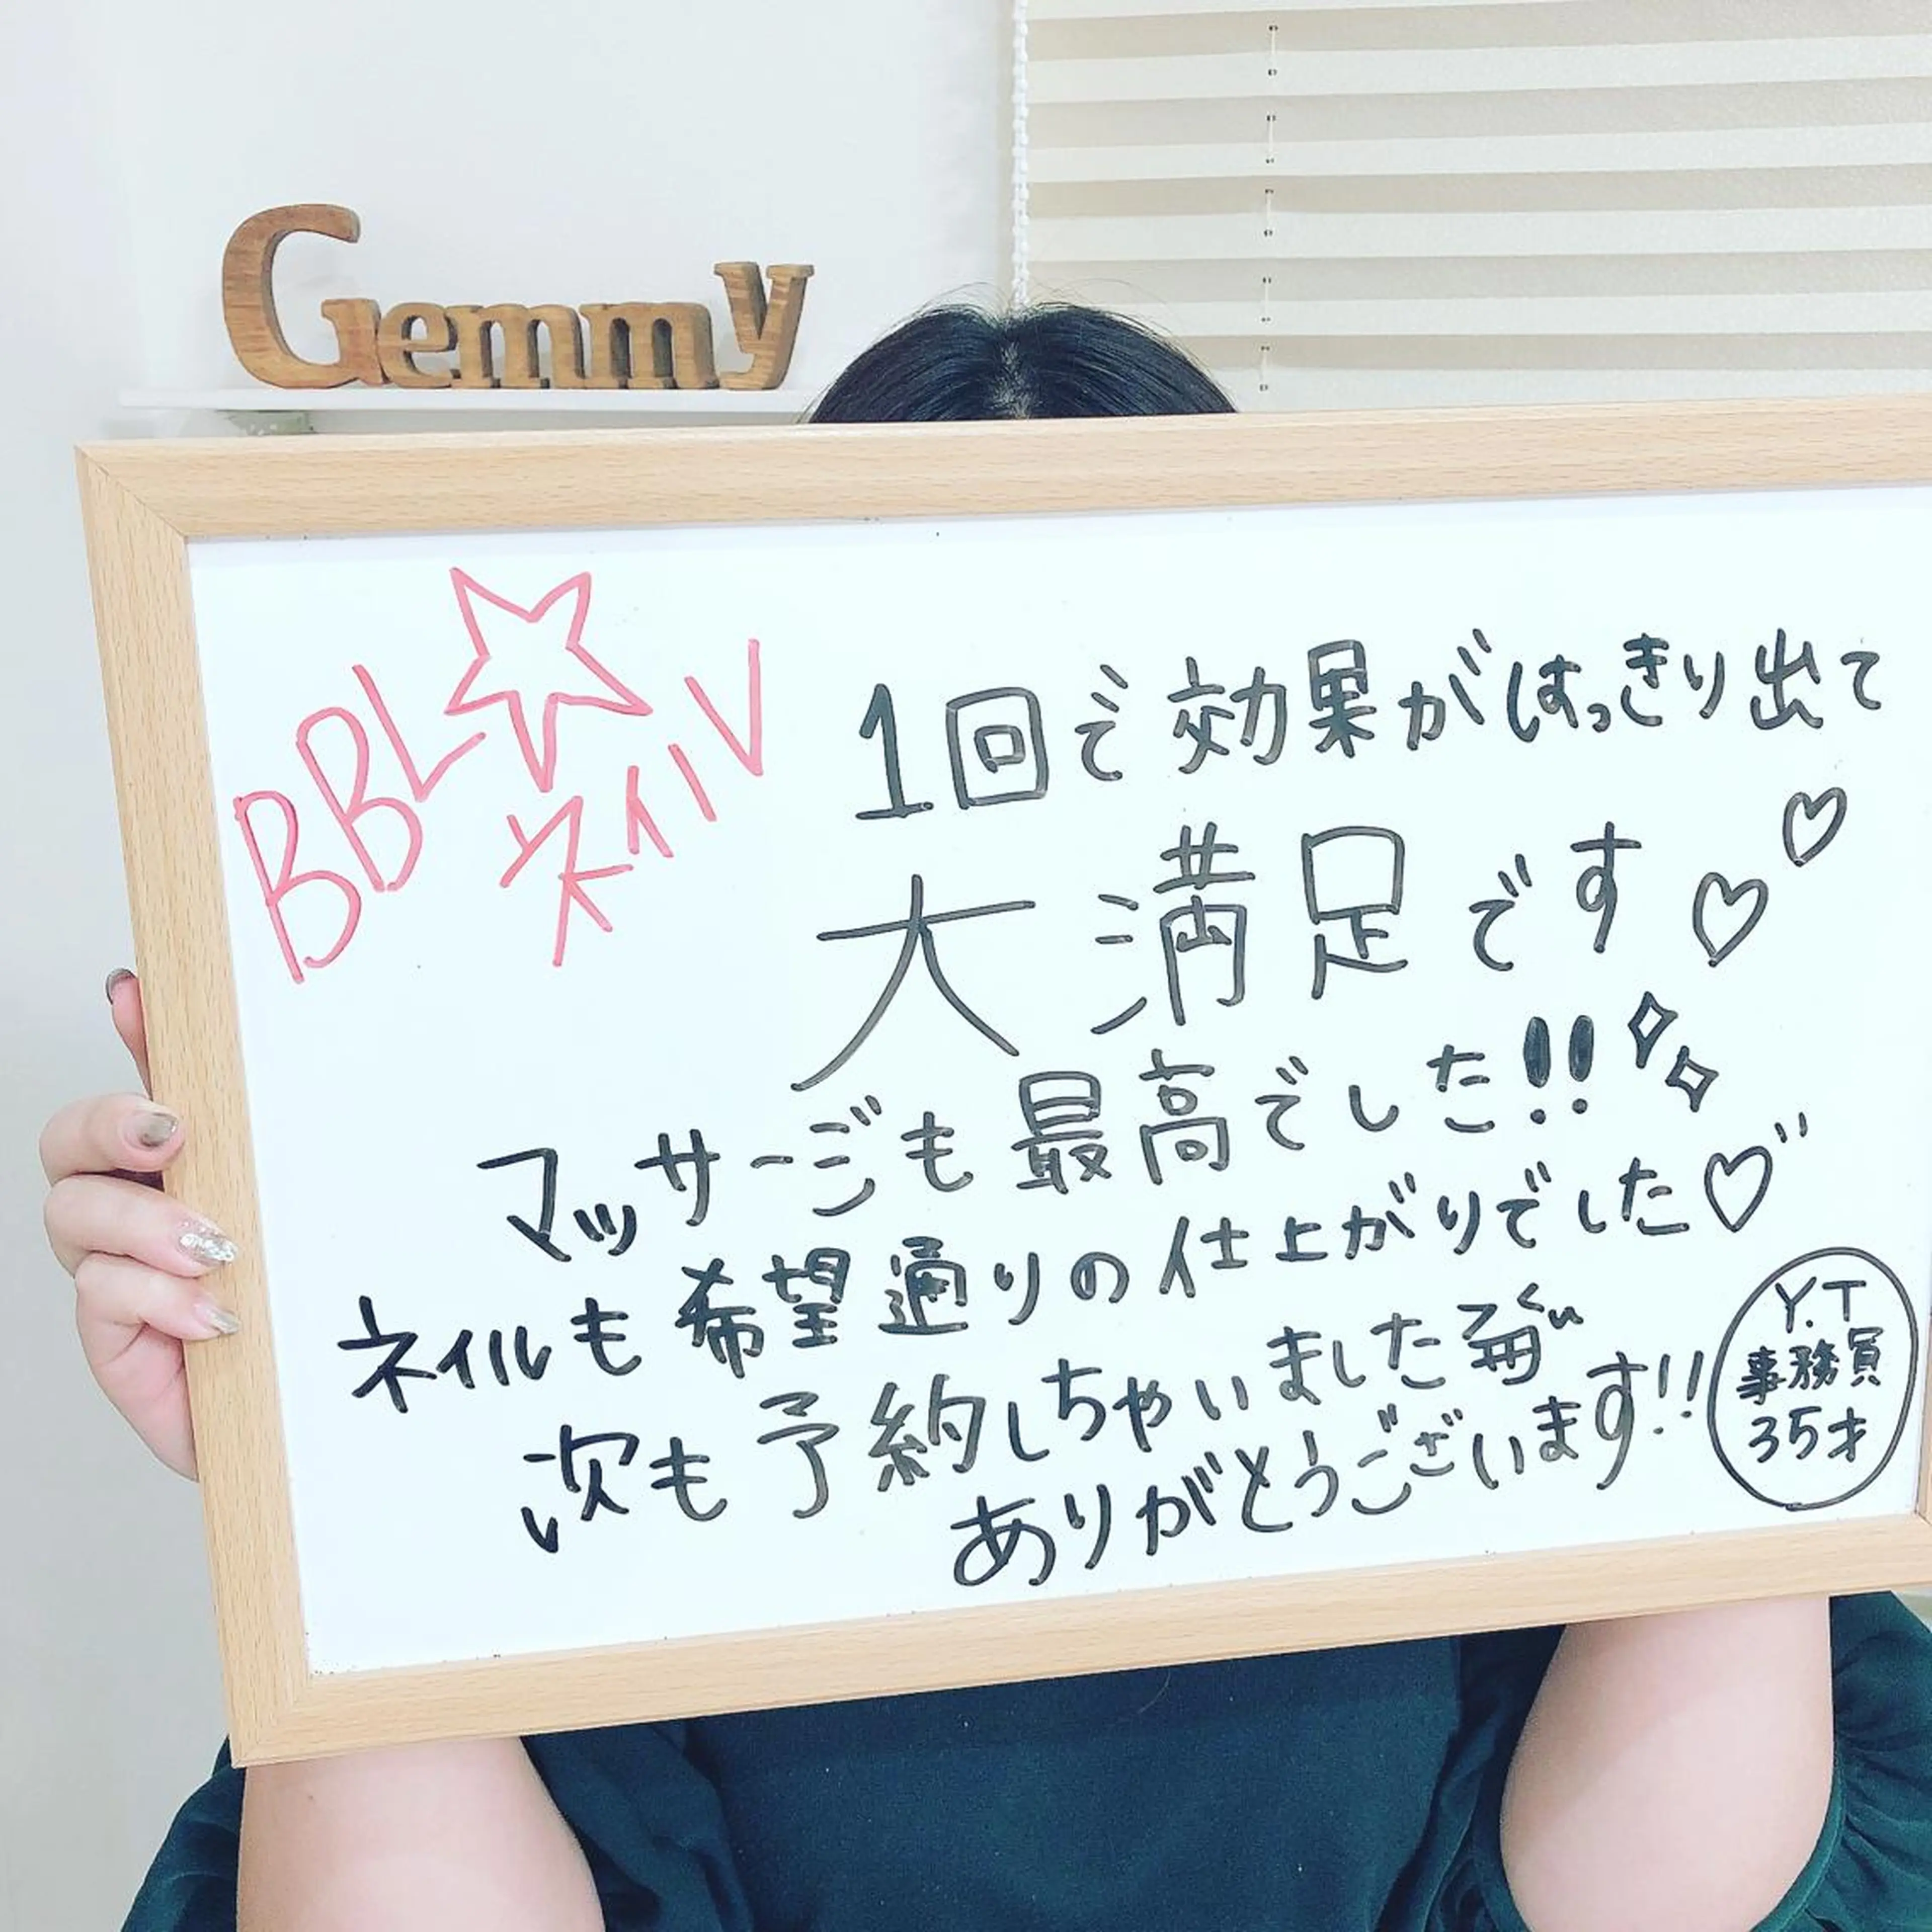 Gemmy
BBL☆
ネイル
1回で効果がはっきり出て
大満足です♡♡
マッサージも最高でした!!
ネイルも希望通りの仕上がりでした♡
次も予約しちゃいました
ありがとうございます!!
Y.T
事務員
35才